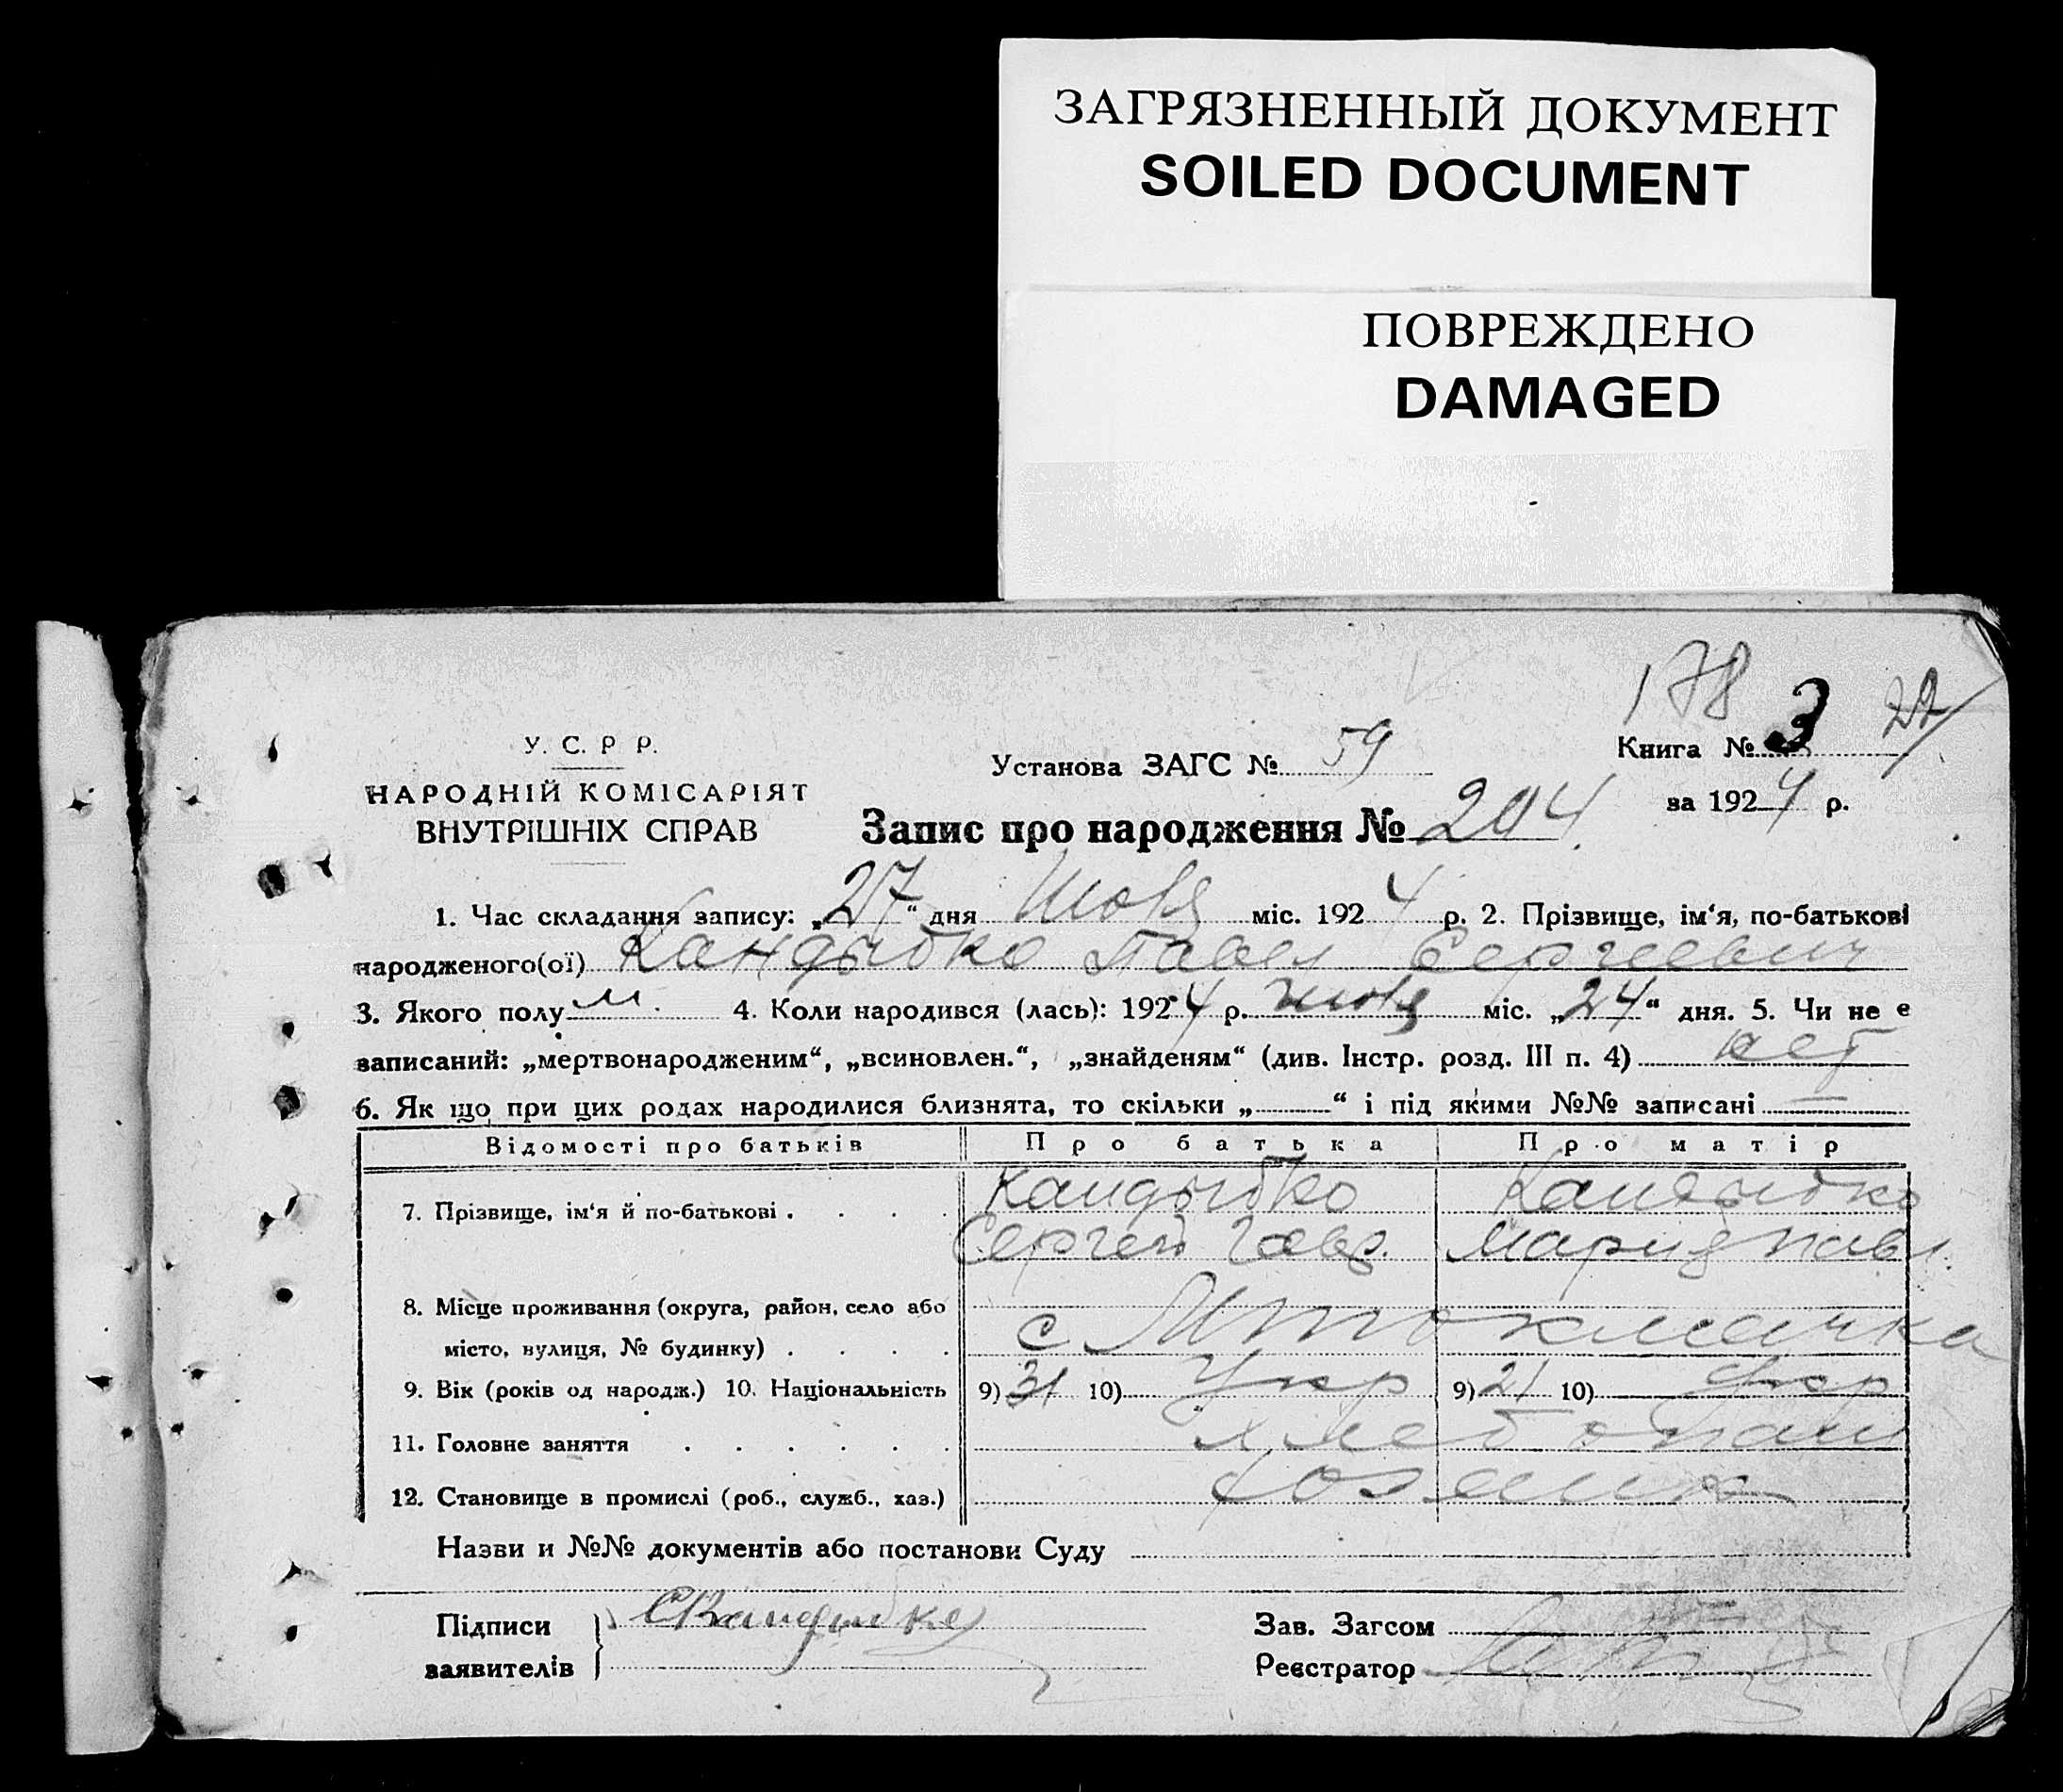 ЗАГРЯЗНЕННЫЙ ДОКУМЕНТ
SOILED DOCUMENT
ПОВРЕЖДЕНО
DAMAGED
178 22
У. С. Р Р.
Установа ЗАГС № 59
Книга № 3
НАРОДНІЙ КОМІСАРІЯТ
ВНУТРІШНІХ СПРАВ
Запис про народження № 204
за 1924 р.
1. Час складання запису: „27“ дня Июля міс. 1924 р. 2. Прізвище, ім‘я, по-батькові
народженого(ої) Кандыбко Павел Сергеевич
3. Якого полу м. 4. Коли народився (лась): 1924 р. июля міс. „24“ дня. 5. Чи не е
записаний: „мертвонародженим“, „всиновлен.“, „знайденям“ (див. Інстр. розд. III п. 4) нет
6. Як що при цих родах народилися близнята, то скільки „ “ і під якими №№ записані —
Відомості про батьків Про батька Про матір
7. Прізвище, ім‘я й по-батькові . . . . Кандыбко Кандыбко
Сергей Гавр. Мария Павл.
8. Місце проживання (округа, район, село або
місто, вулиця, № будинку) . . . . с
9. Вік (років од народж.) 10. Національність 9) 31 10) Укр 9) 21 10) Укр
11. Головне заняття . . . . . . хлебопаш
12. Становище в промислі (роб., служб., хаз.) хозяин
Назви и №№ документів або постанови Суду
Підписи СКандыбко Зав. Загсом
заявителів Реєстратор